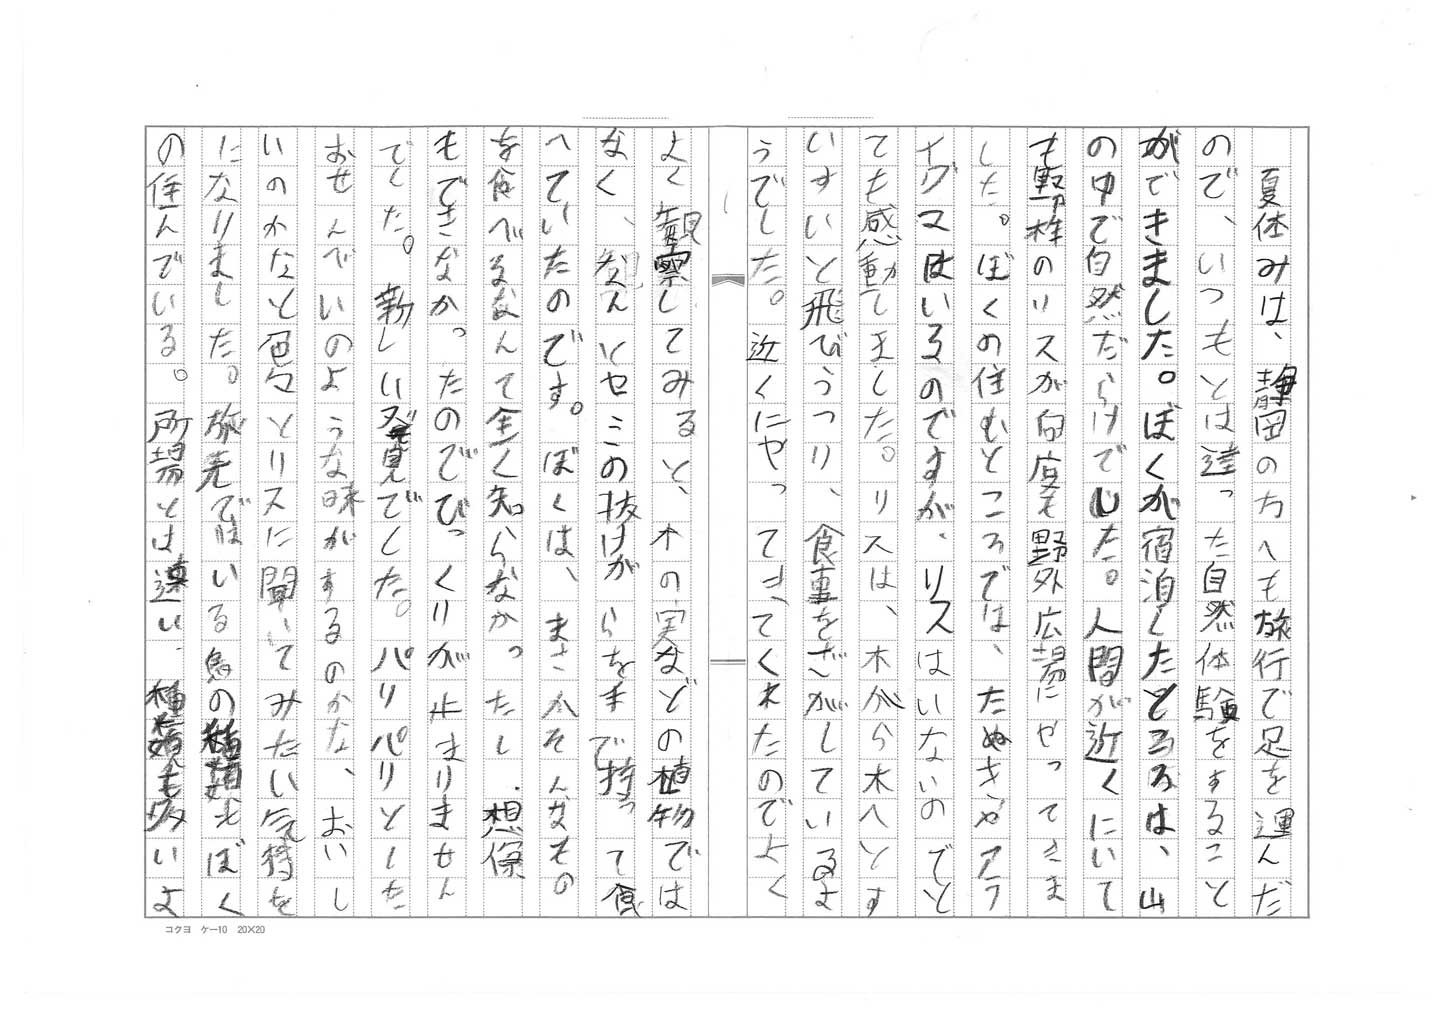 夏休みは、静岡の方へも旅行で足を運んだ
ので、いつもとは違った自然体験をすること
ができました。ぼくが宿泊したところは、山
の中で自然だらけでした。人間が近くにいて
も野性のリスが何度も野外広場にやってきま
した。ぼくの住むところでは、たぬきやアラ
イグマはいるのですが、リスはいないのでと
ても感動してました。リスは、木から木へとす
いすいと飛びうつり、食事をさがしているよ
うでした。近くにやってきてくれたのでよく
よく観察してみると、木の実などの植物では
なく、なんとセミの抜けがらを手で持って食
べていたのです。ぼくは、まさかそんなもの
を食べるなんて全く知らなかったし、想像
もできなかったのでびっくりが止まりません
でした。新しい発見でした。パリパリとした
おせんべいのような味がするのかな、おいし
いのかなと色々とリスに聞いてみたい気持を
になりました。旅先ではいる鳥の種類も、ぼく
の住んでいる。所場とは違い、種類も多いよ
コクヨ ケー10 20×20